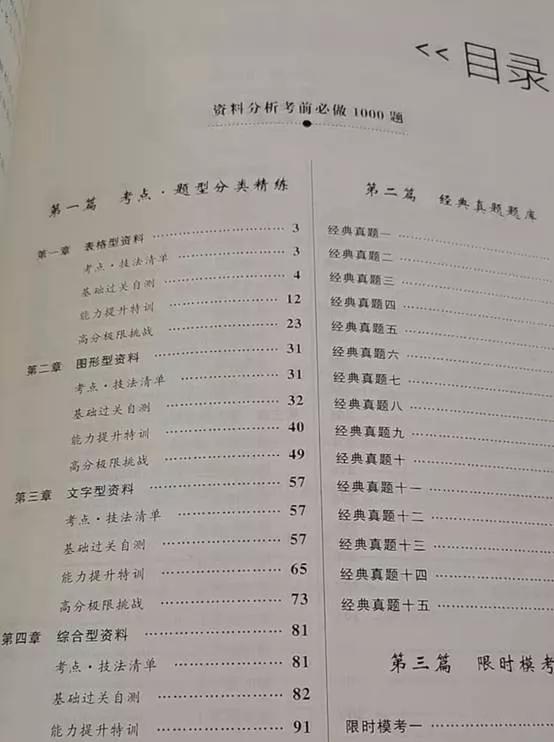 << 目录
资料分析考前必做1000题
第一篇 考点·题型分类精练
第一章 表格型资料 3
考点·技法清单 3
基础过关自测 4
能力提升特训 12
高分极限挑战 23
第二章 图形型资料 31
考点·技法清单 31
基础过关自测 32
能力提升特训 40
高分极限挑战 49
第三章 文字型资料 57
考点·技法清单 57
基础过关自测 57
能力提升特训 65
高分极限挑战 73
第四章 综合型资料 81
考点·技法清单 81
基础过关自测 82
能力提升特训 91
第二篇 经典真题题库
经典真题一
经典真题二
经典真题三
经典真题四
经典真题五
经典真题六
经典真题七
经典真题八
经典真题九
经典真题十
经典真题十一
经典真题十二
经典真题十三
经典真题十四
经典真题十五
第三篇 限时模考
限时模考一